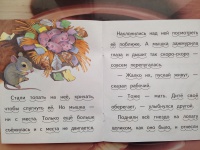 Стали толкать на неё, кричать,
чтобы спугнуть её. Но мышка —
ни с места. Только ещё больше
съёжилась и с места не двигается.
Наклонились над ней посмотреть
её поближе. А мышка зажмурила
глаза и дышит так скоро-скоро —
совсем перепугалась.
— Жалко её, пускай живёт,
сказал
— Тоже — мать. Детей своих
оберегает, — улыбнулся другой.
Подняли всё гнездо на лопате,
, как оно было, и отнесли